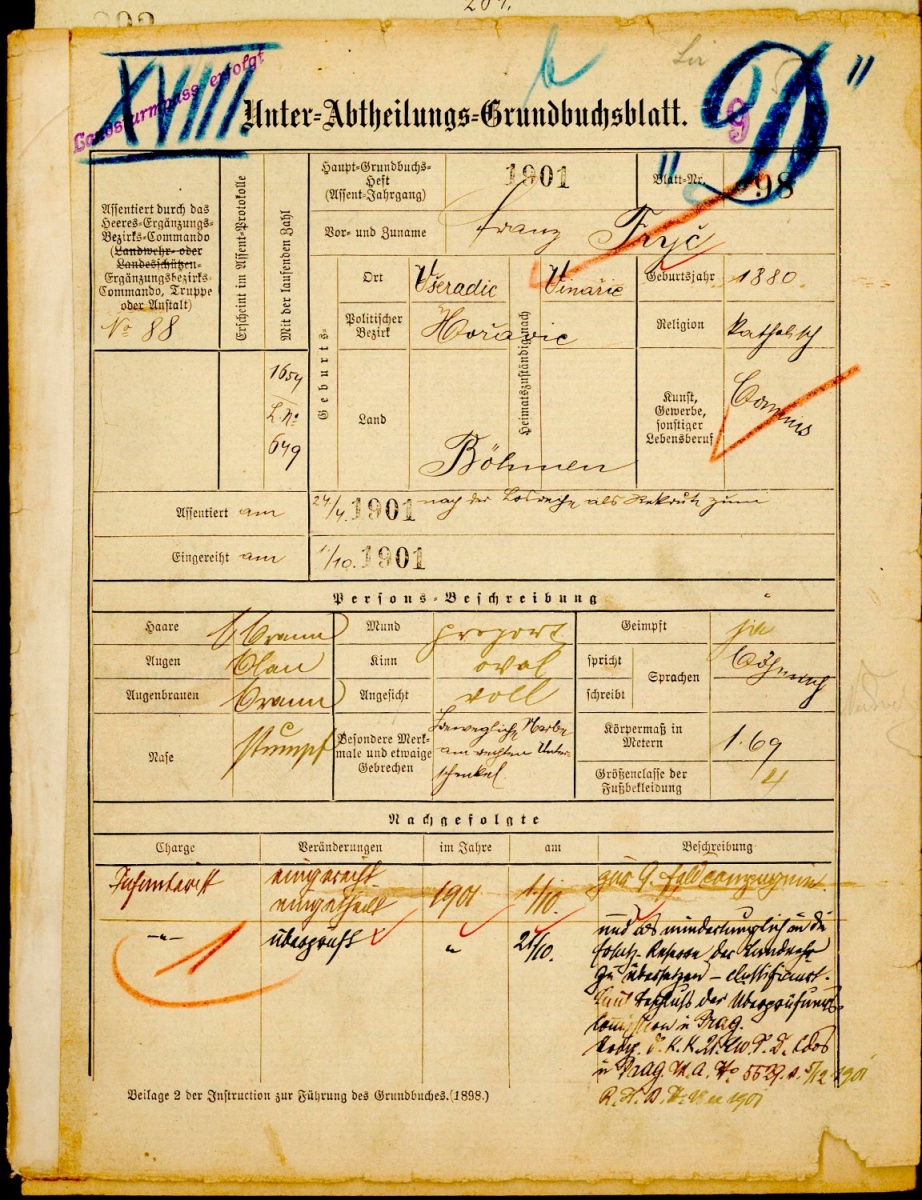 201.
XVIII
Landsturmpass erfolgt
Unter-Abtheilungs-Grundbuchsblatt.
9
„D"
Assentiert durch das
Heeres-Ergänzungs-
Bezirks-Commando
(Landwehr- oder
Landesschützen-
Ergänzungsbezirks-
Commando, Truppe
oder Anstalt)
No 88
Erscheint im Assent-Protokolle
Mit der laufenden Zahl
1654
L. No
649
Haupt-Grundbuchs-
Heft
(Assent-Jahrgang)
1901
Blatt-Nr.
98
Vor- und Zuname
Franz Fryč
Geburts-
Ort
Všeradic
Politischer
Bezirk
Hořovic
Land
Böhmen
Heimatszuständig nach
Vinařic
Geburtsjahr
1880.
Religion
katholisch
Kunst,
Gewerbe,
sonstiger
Lebensberuf
Commis
Assentiert am
24/4. 1901 nach der Losreihe als Rekrut zum
Eingereiht am
1/10. 1901
Persons-Beschreibung
Haare
braun
Augen
blau
Augenbrauen
braun
Nase
stumpf
Mund
proport.
Kinn
oval
Angesicht
voll
Besondere Merk-
male und etwaige
Gebrechen
bewegliche Narbe
am rechten Unter-
schenkel
Geimpft
ja
spricht
schreibt
Sprachen
böhmisch
Körpermaß in
Metern
1.69
Größenclasse der
Fußbekleidung
4
Nachgefolgte
Charge
Veränderungen
im Jahre
am
Beschreibung
Infanterist
eingereiht
eingetheilt
1901
1/10.
zur 9. Feldcompagnie
-"-
1
überprüft
"
21/10.
und als mindertauglich in die
Ersatz-Reserve der Landwehr
zu übersetzen – classificirt.
Laut Beschluss der Überprüfungs-
commission in Prag.
in Prag M. A. No 5529 v. 5/12 1901
Beilage 2 der Instruction zur Führung des Grundbuches. (1898.)